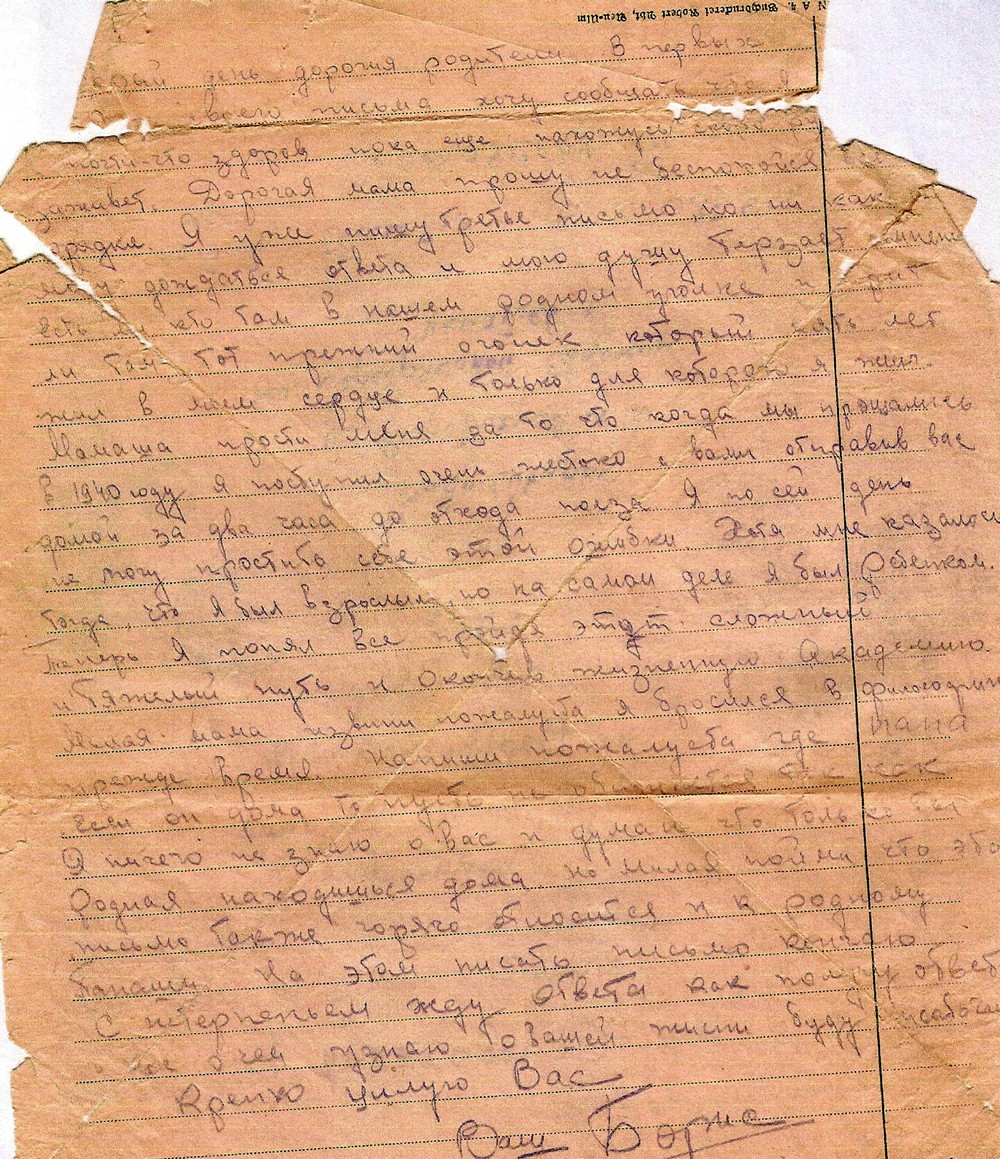 N A 4. Buchdruckerei Robert Abt, Neu-Ulm
день дорогия родители. В первых
своего письма хочу сообщать что я
почти-что здоров пока еще нахожусь скоро
заживет. Дорогая мама прошу не беспокойся
Я уже пишу третье письмо, но ни как
могу дождаться ответа и мою душу терзает
есть ли кто там в нашем родном уголке и горит
ли там тот прежний огонек который пять лет
жил в моем сердце и только для которого я жил.
Мамаша прости меня за то что когда мы прощались
в 1940 году я поступил очень жестоко с вами отправив вас
домой за два часа до отхода поезда Я по сей день
не могу простить себе этой ошибки. Хотя мне казалось
тогда, что я был взрослым, но на самом деле я был Ребенком.
Теперь я понял все пройдя этот сложный
и тяжелый путь и окончив жизненную Академию.
Милая мама извини пожалуста я бросился в философию
прежде время. Напиши пожалуста где папа
если он дома то пусть не обижается так как
Я ничего не знаю о вас и думаю что только ты
Родная находишься дома. Но милая пойми что это
письмо также горячо относится и к родному
папаши. На этом писать письмо кончаю
С нетерпеньем жду ответа как получу ответ
узнаю о вашей жисни буду
Крепко цилую Вас
Ваш Борис